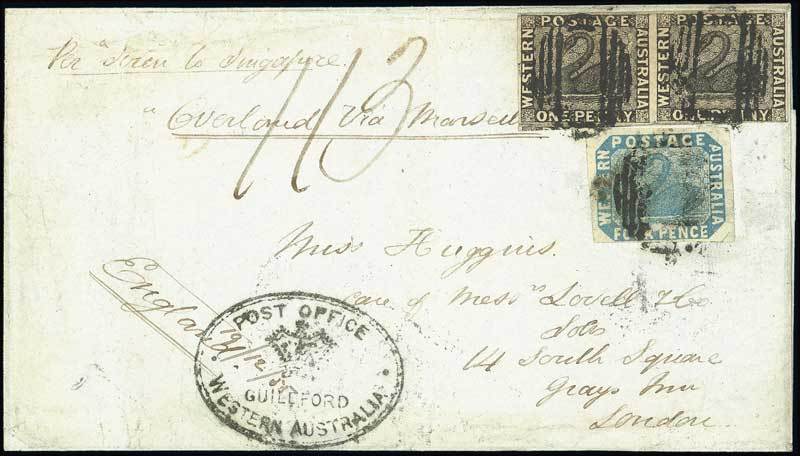 Per "Siren to Singapore.
"Overland Via Marseil
1/13
WESTERN POSTAGE AUSTRALIA ONE PENNY
WESTERN POSTAGE AUSTRALIA ONE PENNY
WESTERN POSTAGE AUSTRALIA FOUR PENCE
Miss Huggins.
care of Messrs Lovell & Co
Solrs
14 South Square
Grays Inn
London.
England
POST OFFICE
GUILDFORD
WESTERN AUSTRALIA